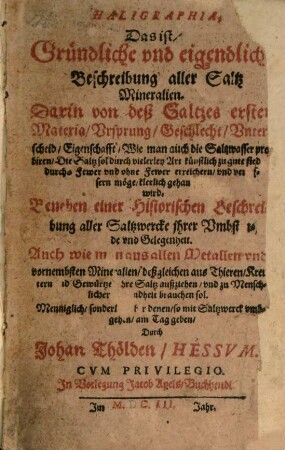 HALIGRAPHIA,
Das ist/
Gründliche vnd eigendlich
Beschreibung aller Saltz
Mineralien.
Darin von deß Saltzes erster
Materia/ Vrsprung/ Geschlecht/ Vnter
scheid/ Eigenschafft/ Wie man auch die Saltzwasser pro
biren/ Die Saltz sol durch vielerley Art künstlich zu gute sied
durchs Fewer vnd ohne Fewer erreichern/ vnd ver
sern möge/ klerlich gehan
wird.
Beneben einer Historischen Beschrei
bung aller Saltzwercke ihrer Vmbst
de vnd Gelegenheit.
Auch wie m n aus allen Metallen vnd
vornembsten Mine alien/ deßgleichen aus Thieren/ Kreu
tern d Gewürtze hre Saltz außziehen/ vnd zu Mensch
licher ndheit brauchen sol.
Menniglich/ sonderl denen/ so mit Saltzwerck vmb
gehen/ am Tag geben/
Durch
Johan Thölden/ HESSVM.
CVM PRIVILEGIO.
In Vorlegung Jacob Apels/ Buchhendl
Im M. C. III. Jahr.